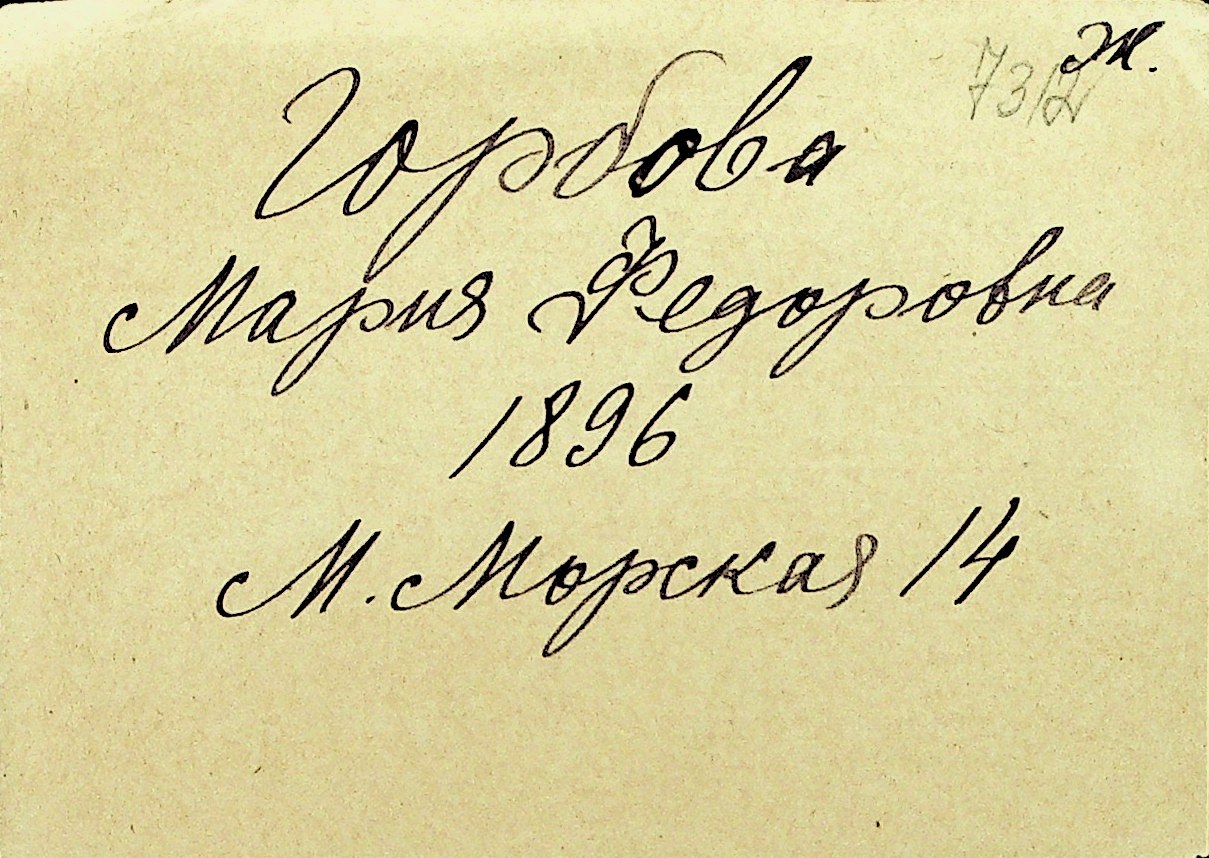 73/2 Ж.
Горбова
Мария Федоровна
1896
М. Морская 14